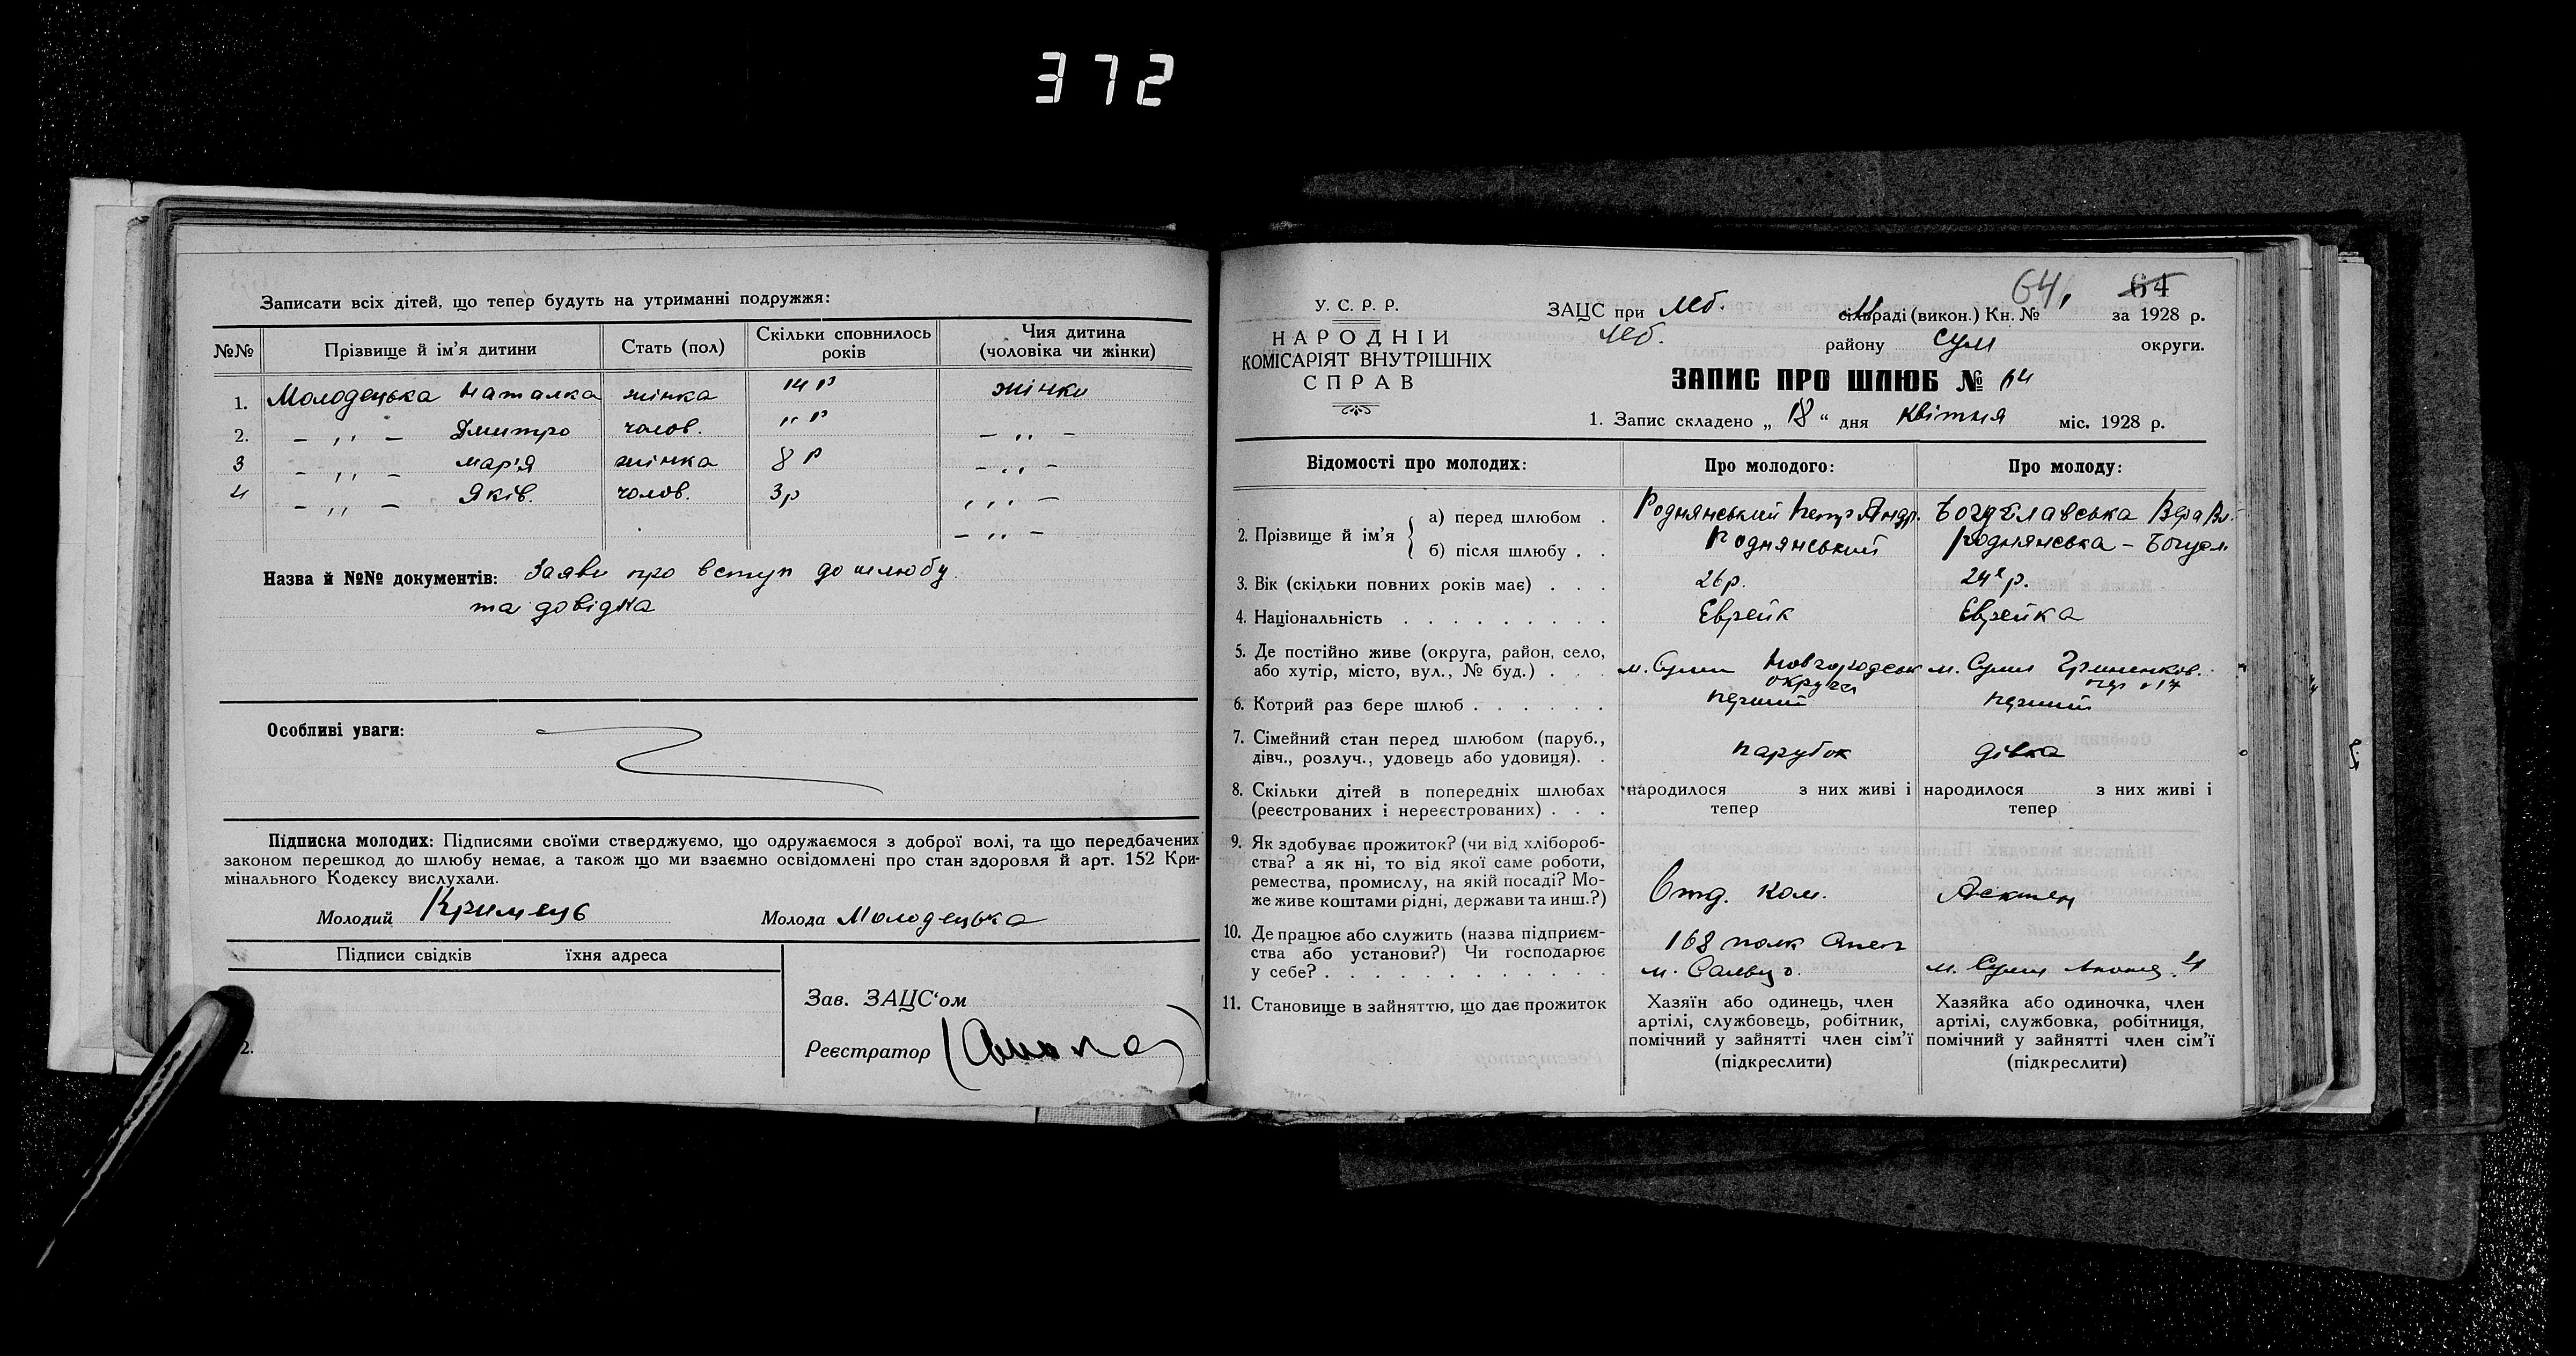 372
Записати всіх дітей, що тепер будуть на утриманні подружжя:
№№ Прізвище й ім'я дитини Стать (пол) Скільки сповнилось років Чия дитина (чоловіка чи жінки)
1. Молодецька Наталка жінка 14 р жінки
2. — " — Дмитро чолов. 11 р — " —
3 — " — Мар'я жінка 8 р — " —
4 — " — Яків. чолов. 3р " —
— " —
Назва й №№ документів: Заяви про вступ до шлюбу
та довідка
Особливі уваги:
Підписка молодих: Підписями своїми стверджуємо, що одружаємося з доброї волі, та що передбачених
законом перешкод до шлюбу немає, а також що ми взаємно освідомлені про стан здоровля й арт. 152 Кри-
мінального Кодексу вислухали.
Молодий Кримець Молода Молодецька
Підписи свідків їхня адреса
2.
Зав. ЗАЦС'ом
Реєстратор
У. С. Р. Р.
НАРОДНІЙ
КОМІСАРІЯТ ВНУТРІШНІХ
СПРАВ
64 64
ЗАЦС при Мб. сільраді (викон.) Кн. № за 1928 р.
району Сум округи.
ЗАПИС ПРО ШЛЮБ № 64
1. Запис складено „ 18 " дня квітня міс. 1928 р.
Відомості про молодих: Про молодого: Про молоду:
2. Прізвище й ім'я
а) перед шлюбом . Роднянський Петр Андр. Богуславська Вера Вл.
б) після шлюбу . . Роднянський Роднянська – Богусл.
3. Вік (скільки повних років має) . . . 26р. 24 р.
4. Національність . . . . . . . . . Еврейк Еврейка
5. Де постійно живе (округа, район, село,
або хутір, місто, вул., № буд.) . . . м. Суми Новгородськ м. Суми
округа 17
6. Котрий раз бере шлюб . . . . . . перший перший
7. Сімейний стан перед шлюбом (паруб.,
дівч., розлуч., удовець або удовиця). . парубок дівка
8. Скільки дітей в попередніх шлюбах
(реєстрованих і нереєстрованих) . . . народилося з них живі і тепер народилося з них живі і тепер
9. Як здобуває прожиток? (чи від хлібороб-
ства? а як ні, то від якої саме роботи,
ремества, промислу, на якій посаді? Мо-
же живе коштами рідні, держави та инш.?) Отд. ком.
10. Де працює або служить (назва підприєм-
ства або установи?) Чи господарює
у себе? . . . . . . . . . . . . 168 полк
м. м. Суми 4
11. Становище в зайняттю, що дає прожиток
Хазяїн або одинець, член
артілі, службовець, робітник,
помічний у зайнятті член сім'ї
(підкреслити)
Хазяйка або одиночка, член
артілі, службовка, робітниця,
помічний у зайнятті член сім'ї
(підкреслити)